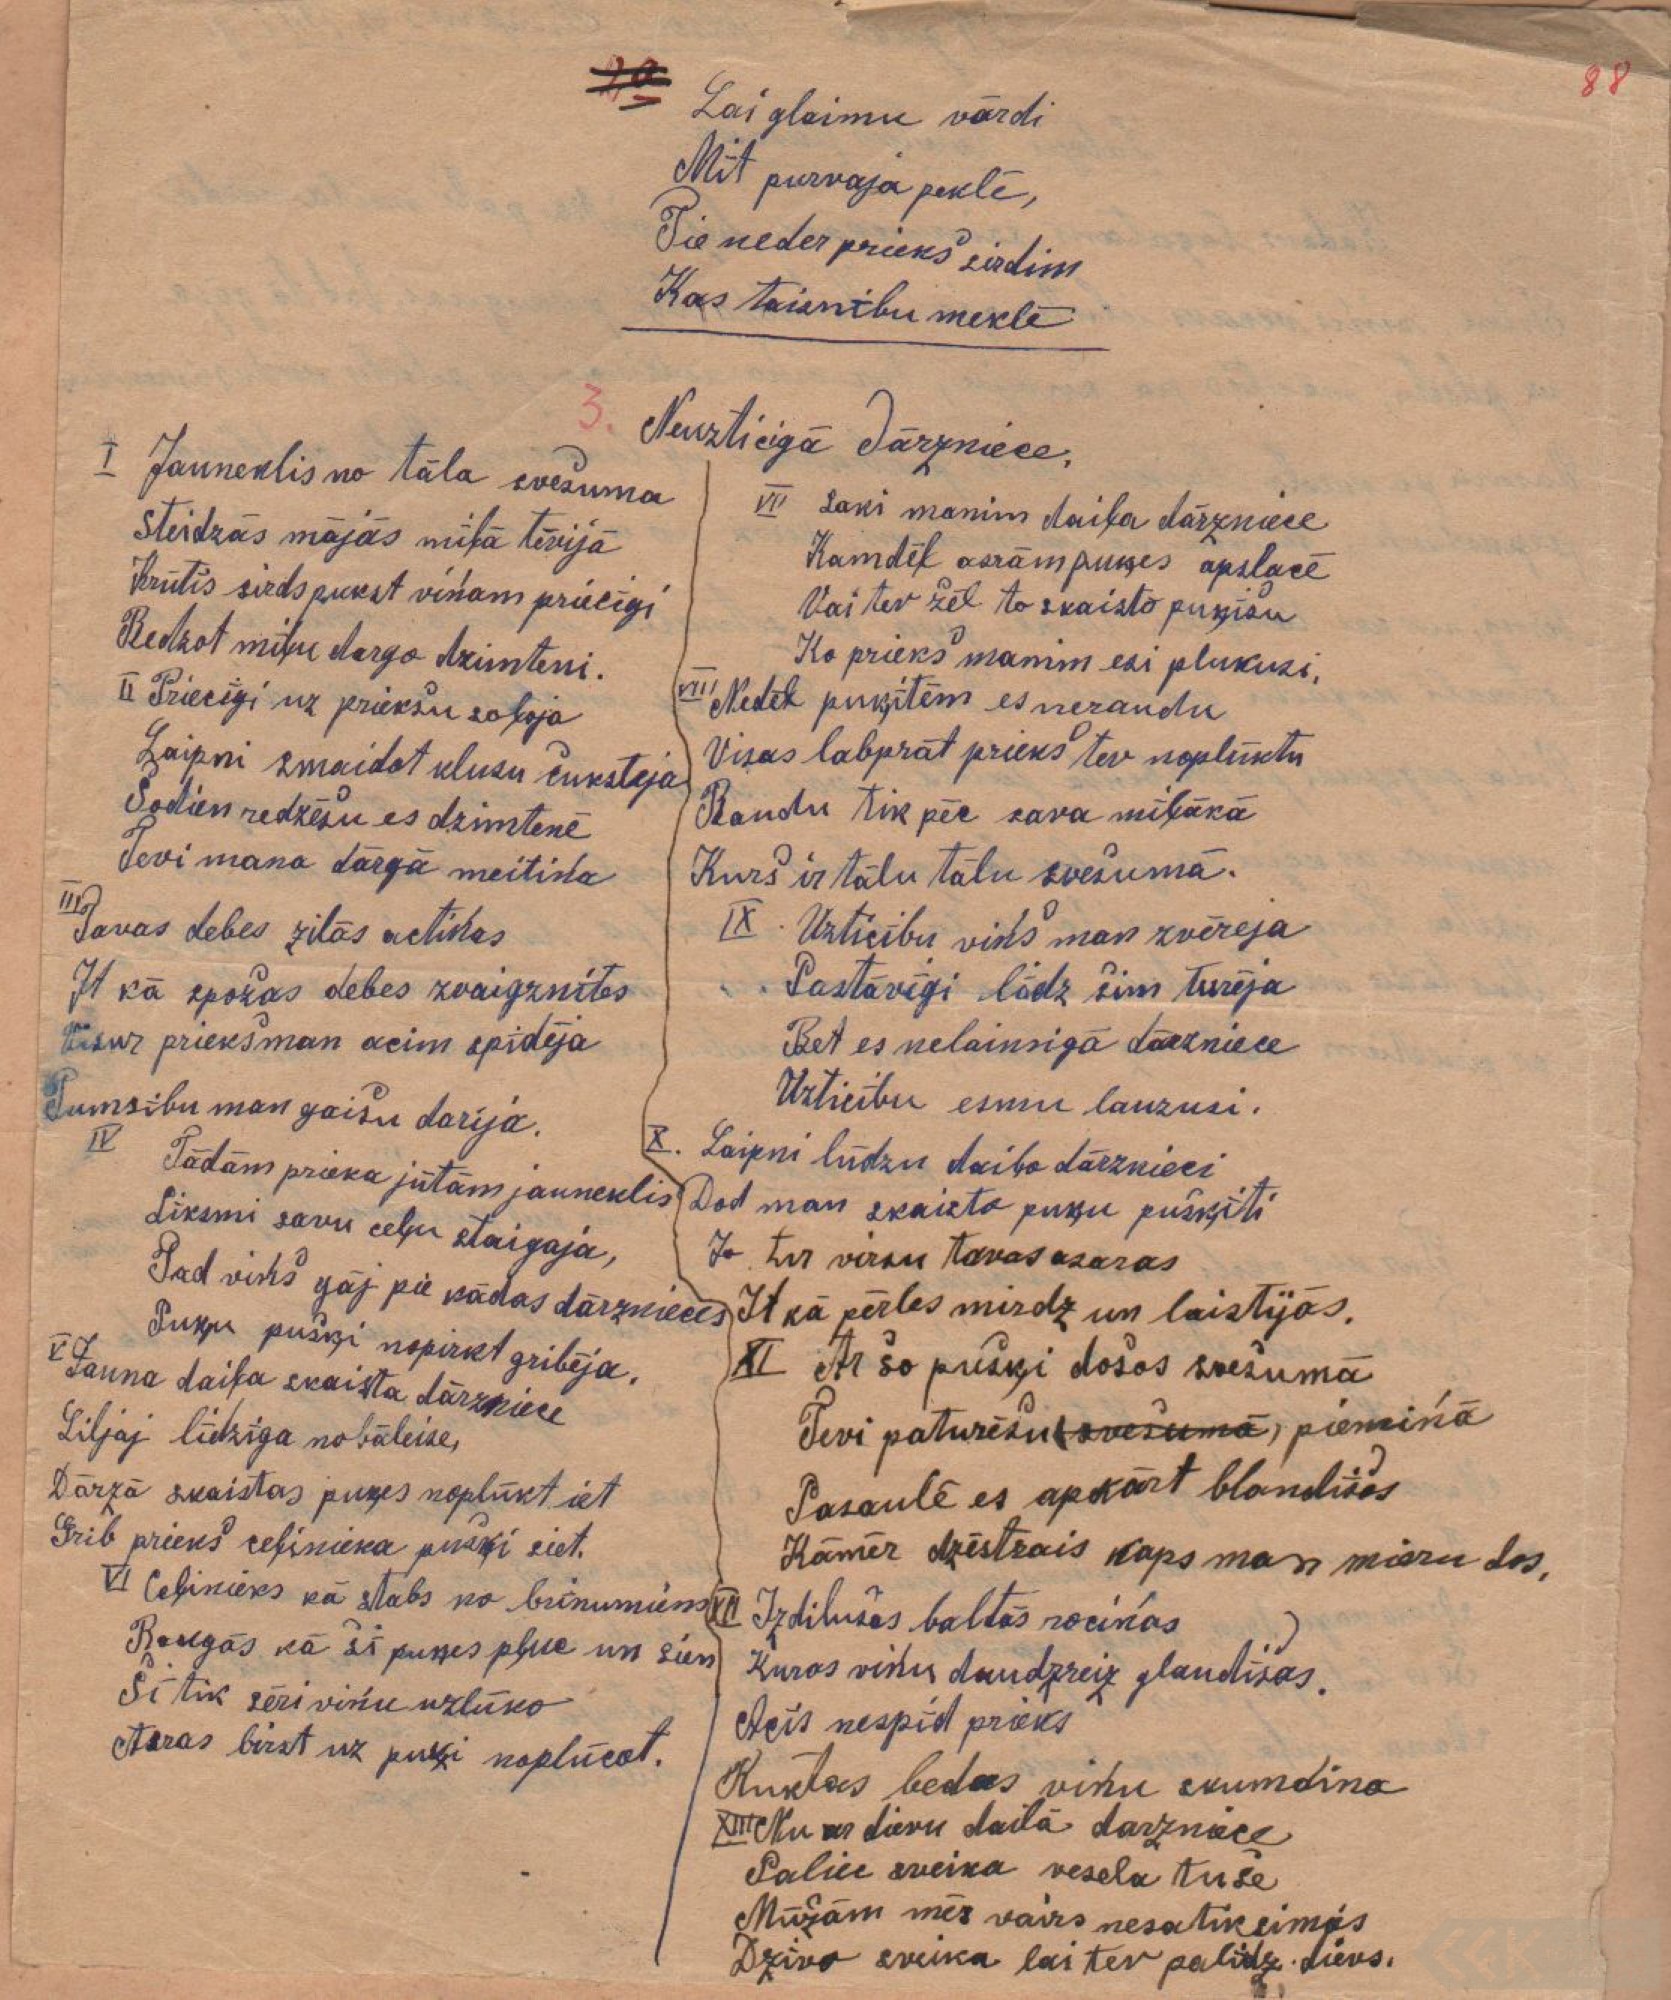 88
Lai glaimu vārdi
Mīt purvajā peklē,
Tie neder priekš sirdīm
Kas taisnību meklē
3. Neuzticīgā Dārzniece.
I Jauneklis no tāla svešuma
Steidzās mājās mīļā tēvijā
Krūtīs sirds pukst viņam priecīgi
Redzot mīļu dārgo dzimteni.
II Priecīgi uz priekšu soļoja
Laipni smaidot klusu čukstēja
Šodien redzēšu es dzimtenē
Tevi mana dārgā meitiņa
III Tavas debes zilās actiņas
It kā spožas debes zvaigznītes
Visur priekšman acim spīdēja
Tumsību man gaišu darīja.
IV Tādām prieka jūtām jauneklis
Liksmi savu ceļu staigāja,
Tad viņš gāj pie kādas dārznieces
Puķu pušķi nopirkt gribēja.
V Jauna daiļa skaista dārzniece
Liljaj līdzīga nobāleise,
Dārzā skaistas puķes noplūkt iet
Grib priekš ceļinieka pušķi siet.
VI Ceļinieks kā stabs no brīnumiems
Raugās kā šī puķes pļuc un sien
Šī tik sēri viņu uzlūko
Asras birst uz puķi noplūcot.
VII Saki manim daiļa dārzniece
Kamdēļ asrām puķes apslacē
Vai tev žēl to skaisto puķišu
Ko priekš manim esi plukusi.
VIII Nedēļ puķītēm es neraudu
Visas labprāt priekš tev noplūktu
Raudu tik pēc sava mīļākā
Kurš ir tālu tālu svešumā.
IX Uzticību viņš man zvērēja
Pastāvīgi lādz šim turēja
Bet es nelaimīgā dārzniece
Uzticību esmu lauzusi.
X. Laipni lūdzu daiļo dārznieci
Dod man skaisto puķu pušķīti
Jo tur virsu tavas asaras
It kā pērles mirdz un laistījās.
XI Ar šo pušķi došos svešumā
Tevi paturēšu (svešumā) piemiņā
Pasaulē es apkārt blandīšos
Kāmēr dzēstrais kaps man mieru dos.
XII Izdilušas baltās rociņas
Kuras viņu daudzreiz glaudīšas.
Acīs nespīd prieks
Kuktas bedas viņu skumdina
XIII Nu ar dievu dailā darzniece
Paliec sveika vesela tu še
Mūžām mēs vairs nesatiksimās
Dzīvo sveika lai tev palīdz dievs.